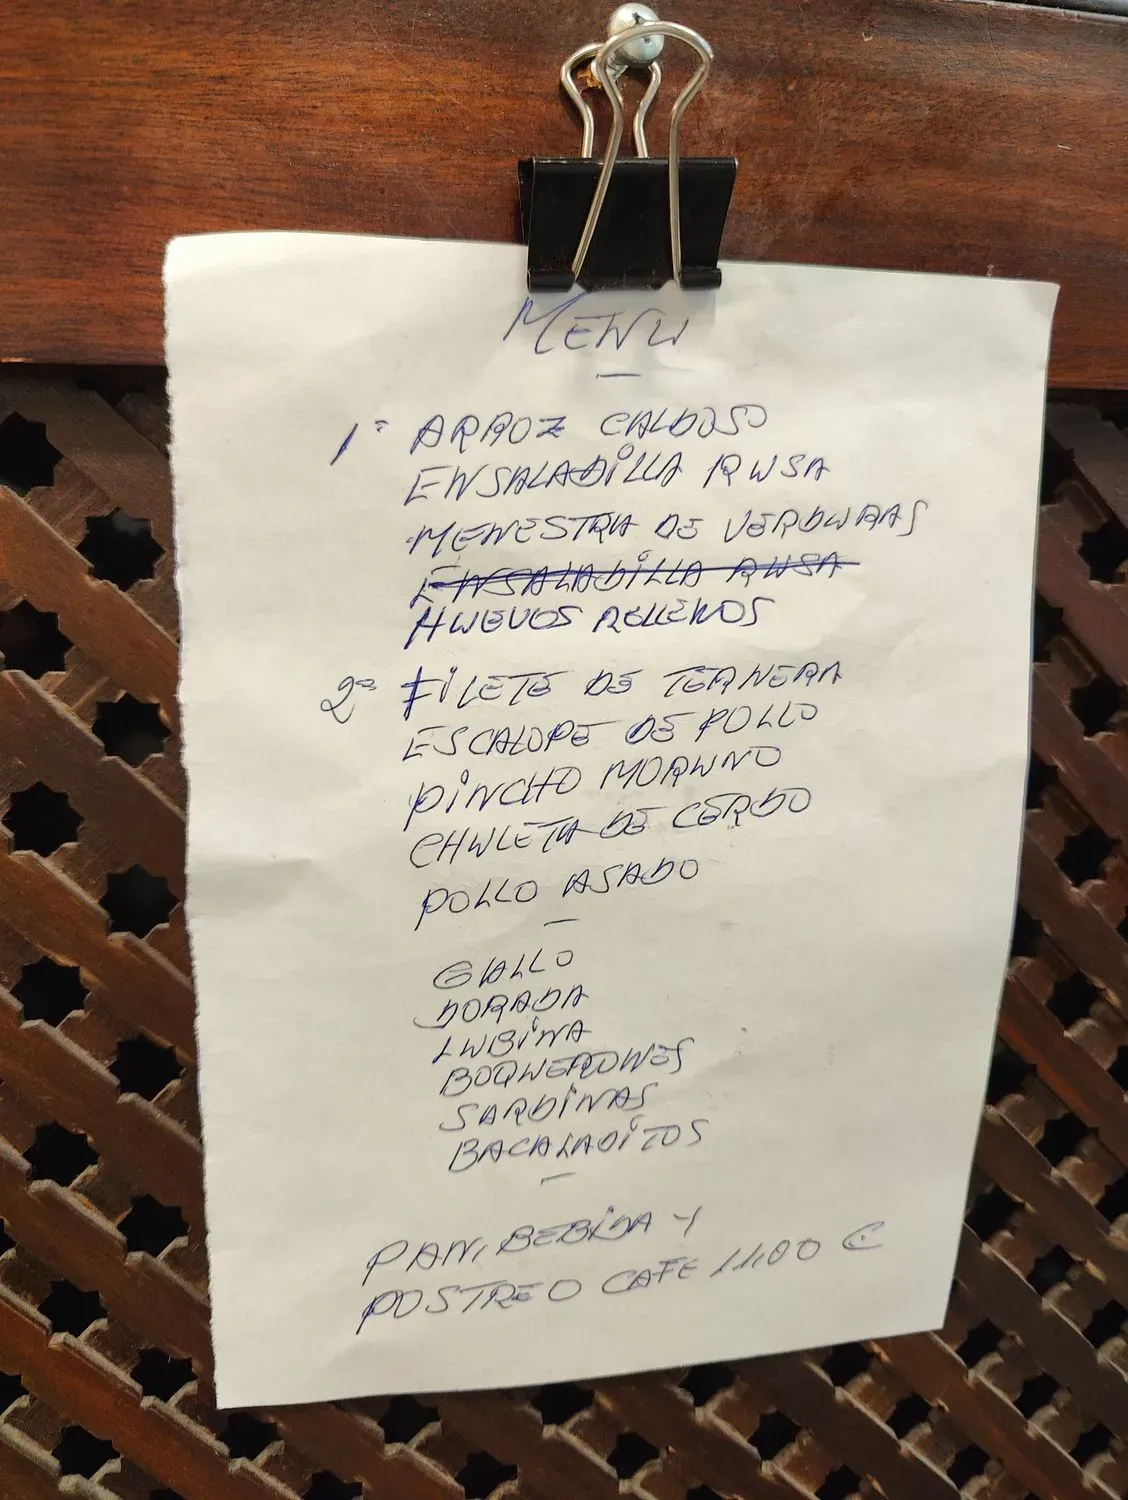 MENU
1º ARROZ CALDOSO
ENSALADILLA RUSA
MENESTRA DE VERDURAS
ENSALADILLA RUSA
HUEVOS RELLENOS
2º FILETE DE TERNERA
ESCALOPE DE POLLO
PINCHO MORUNO
CHULETA DE CERDO
POLLO ASADO
GALLO
DORADA
LUBINA
BOQUERONES
SARDINAS
BACALADITOS
PAN, BEBIDA Y
POSTRE O CAFE 11,00 €